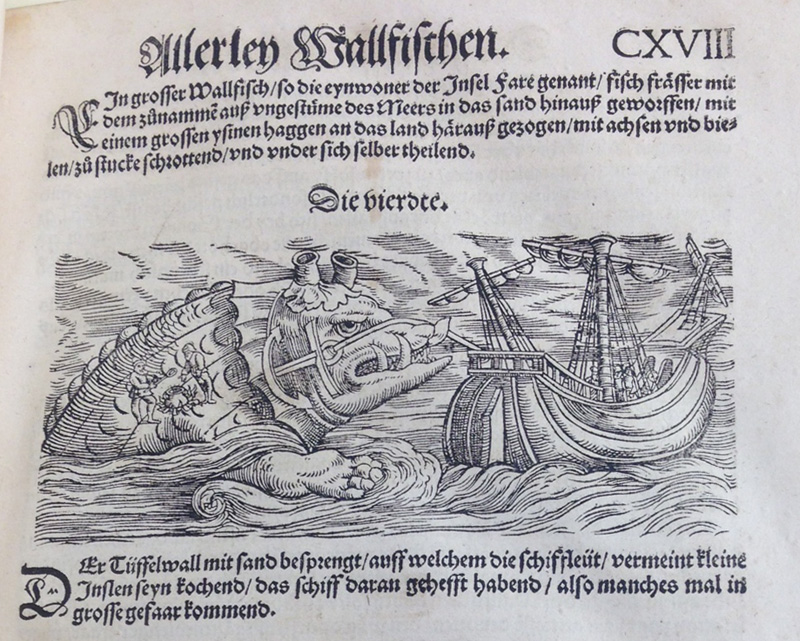 Allerley Wallfischen.
CXVIII
EIn grosser Wallfisch/ so die eynwoner der Insel Fare genant/ fisch frässer mit
dem zůnammē auß vngestüme des Meers in das sand hinauß geworffen/ mit
einem grossen ysinen haggen an das land härauß gezogen/ mit achsen vnd bie-
len/ zů stucke schrottend/ vnd vnder sich selber theilend.
Die vierdte.
DEr Tüffelwall mit sand besprengt/ auff welchem die schiffleüt/ vermeint kleine
Inslen seyn kochend/ das schiff daran gehefft habend/ also manches mal in
grosse gefaar kommend.